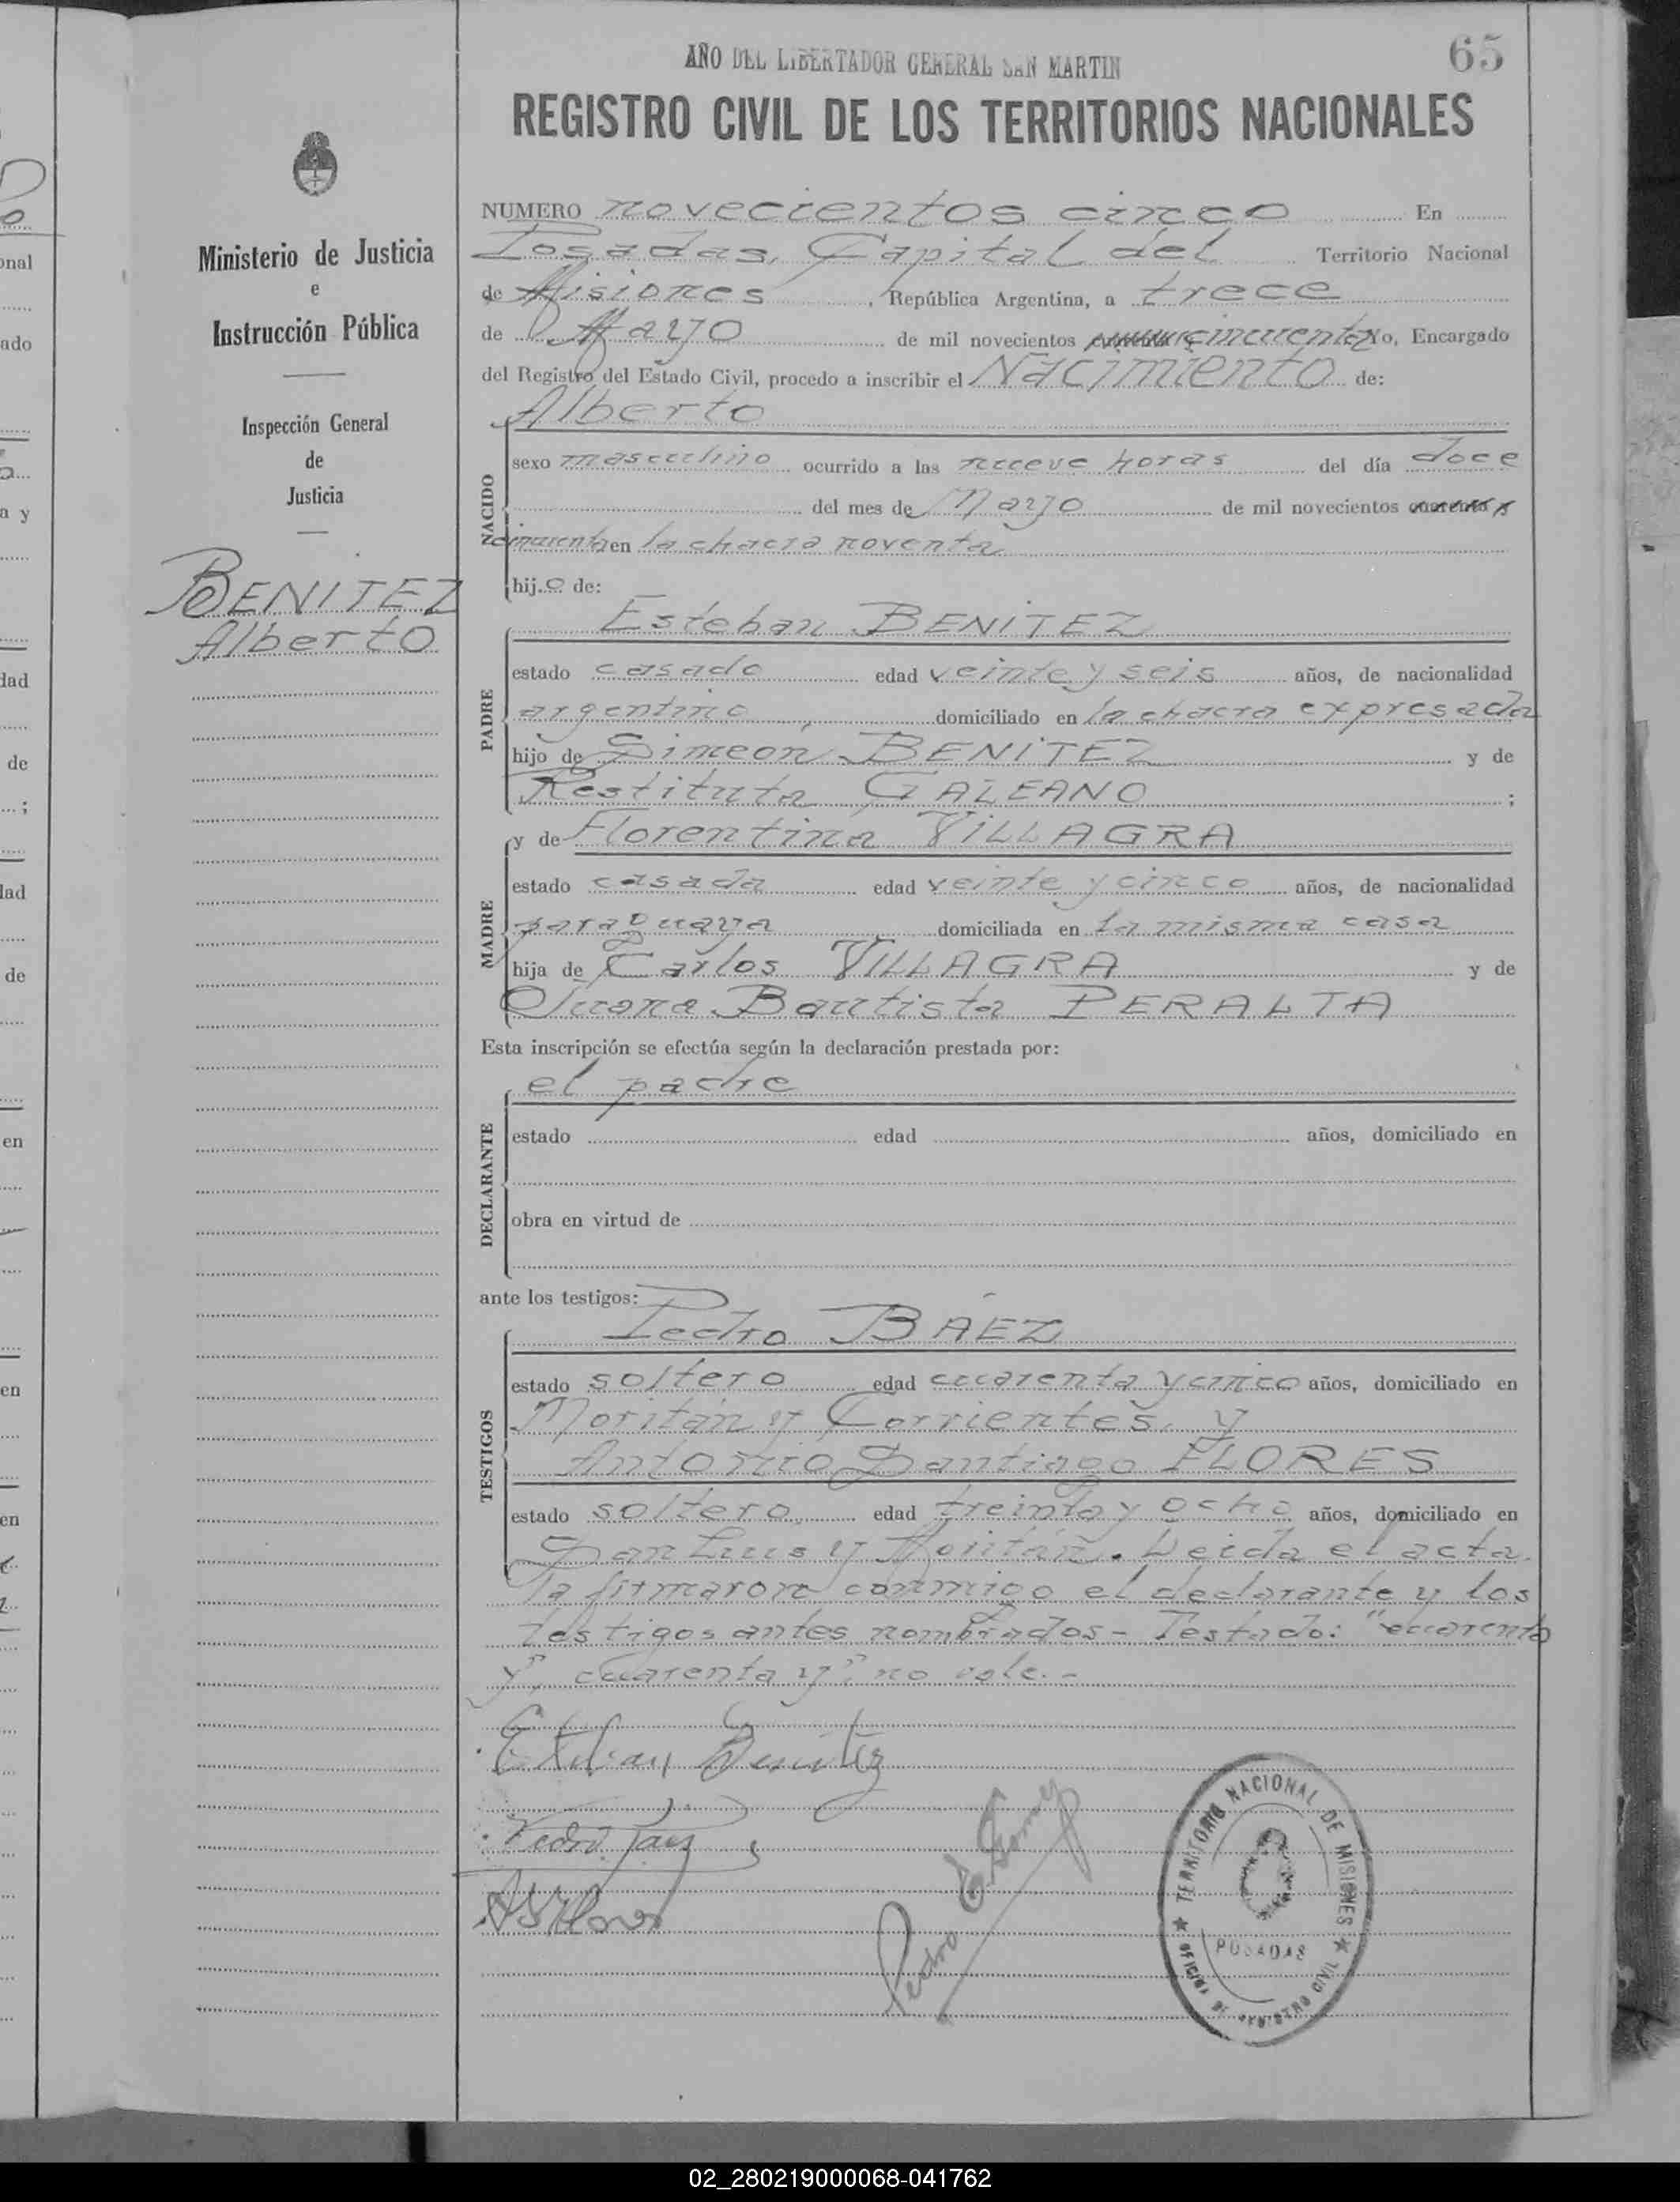 AÑO DEL LIBERTADOR GENERAL SAN MARTIN
65
REGISTRO CIVIL DE LOS TERRITORIOS NACIONALES
Ministerio de Justicia
e
Instrucción Pública
Inspección General
de
Justicia
BENITEZ
Alberto
NUMERO novecientos cinco En
Posadas, Capital del Territorio Nacional
de Misiones, República Argentina, a trece
de Mayo de mil novecientos cincuenta Yo, Encargado
del Registro del Estado Civil, procedo a inscribir el Nacimiento de:
Alberto
NACIDO
sexo masculino ocurrido a las nueve horas del día doce
del mes de Mayo de mil novecientos cuarenta y
cincuenta en la chacra noventa
hijo de:
Esteban BENITEZ
PADRE
estado casado edad veinte y seis años, de nacionalidad
argentino, domiciliado en la chacra expresada
hijo de Simeón BENITEZ y de
Restituta GALEANO ;
y de Florentina VILLAGRA
MADRE
estado casada edad veinte y cinco años, de nacionalidad
paraguaya domiciliada en la misma casa
hija de Carlos VILLAGRA y de
Juana Bautista PERALTA
Esta inscripción se efectúa según la declaración prestada por:
el padre
DECLARANTE
estado edad años, domiciliado en
obra en virtud de
ante los testigos:
Pedro BÁEZ
TESTIGOS
estado soltero edad cuarenta y cinco años, domiciliado en
Moritán y Corrientes, y
Antonio Santiago FLORES
estado soltero, edad treinta y ocho años, domiciliado en
San Luis y Moritán. Leida el acta
la firmaron conmigo el declarante y los
testigos antes nombrados - Testado: "cuarenta
y", cuarenta y": no vale.-
Esteban Benitez
Pedro Baez
A S Flores
Pedro
TERRITORIO NACIONAL DE MISIONES
POSADAS
OFICINA DE REGISTRO CIVIL
onal
ado
a y
dad
de
;
dad
de
en
en
en
02_280219000068-041762